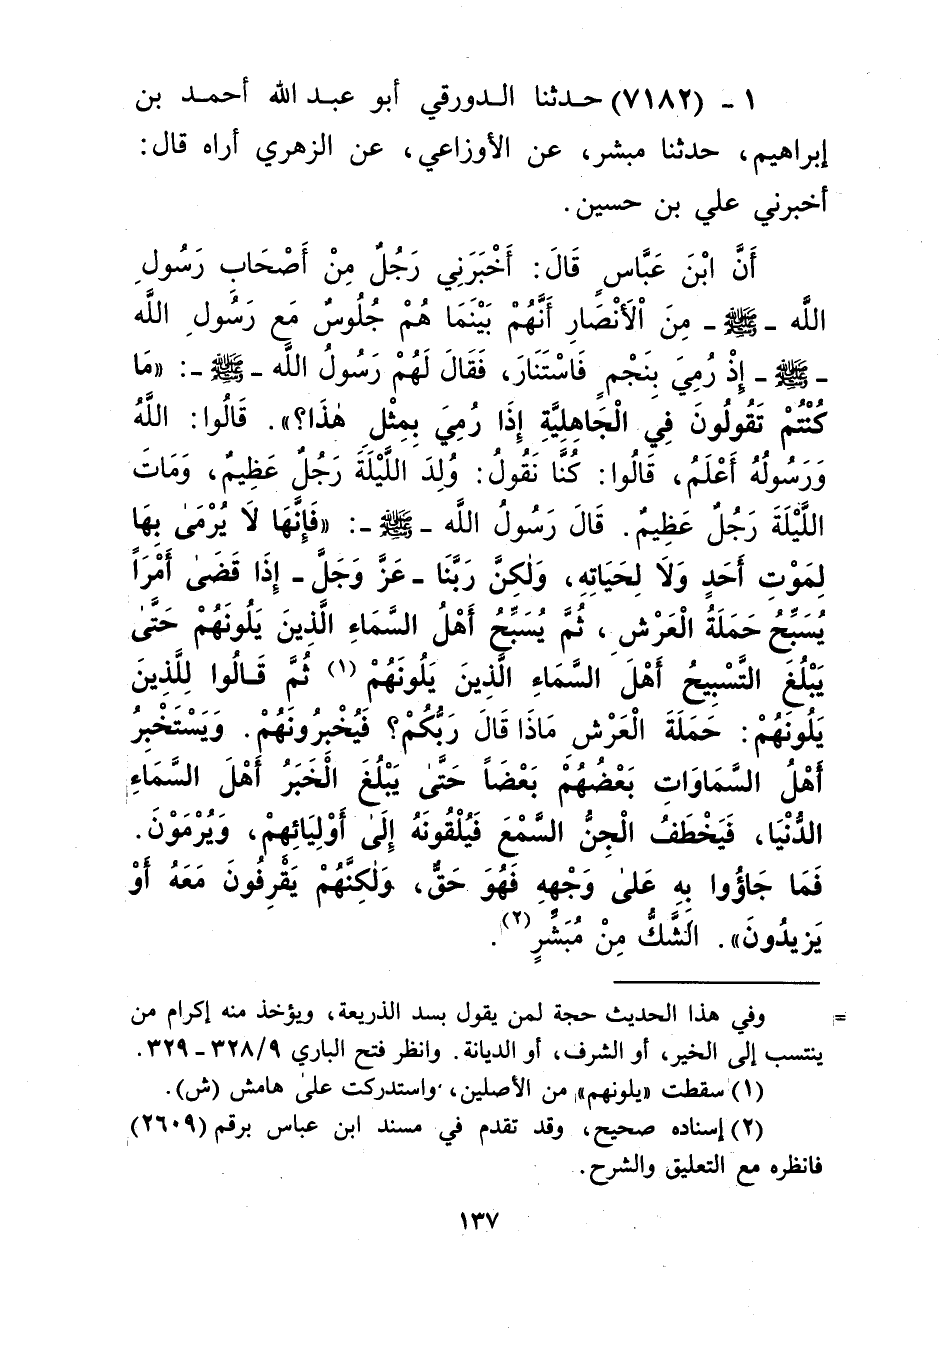 ١ - (٧١٨٢) حـدثنا الـدورقي أبو عبـد الله أحمـد بن
إبراهيم، حدثنا مبشر، عن الأوزاعي، عن الزهري أراه قال:
أخبرني علي بن حسين.
أَنَّ ابْنَ عَبَّاسٍ قَالَ: أَخْبَرَنِي رَجُلٌ مِنْ أَصْحَابِ رَسُولِ
اللَّه - ﷺ - مِنَ الْأَنْصَارِ أَنَّهُمْ بَيْنَمَا هُمْ جُلُوسٌ مَع رَسُولِ اللَّه
- ﷺ - إِذْ رُمِيَ بِنَجْمٍ فَاسْتَنَارَ، فَقَالَ لَهُمْ رَسُولُ اللَّه - ﷺ -: «مَا
كُنْتُمْ تَقُولُونَ فِي الْجَاهِلِيَّةِ إِذَا رُمِيَ بِمِثْلِ هٰذَا؟». قَالُوا: اللَّهُ
وَرَسُولُهُ أَعْلَمُ، قَالُوا: كُنَّا نَقُولُ: وُلِدَ اللَّيْلَةَ رَجُلٌ عَظِيمٌ، وَمَاتَ
اللَّيْلَةَ رَجُلٌ عَظِيمٌ. قَالَ رَسُولُ اللَّه - ﷺ -: «فَإِنَّهَا لَا يُرْمَىٰ بِهَا
لِمَوْتِ أَحَدٍ وَلَا لِحَيَاتِهِ، وَلٰكِنَّ رَبَّنَا - عَزَّ وَجَلَّ - إِذَا قَضَىٰ أَمْرَاً
يُسَبِّحُ حَمَلَةُ الْعَرْشِ، ثُمَّ يُسَبِّحُ أَهْلُ السَّمَاءِ الَّذِينَ يَلُونَهُمْ حَتَّىٰ
يَبْلُغَ التَّسْبِيحُ أَهْلَ السَّمَاءِ الَّذِينَ يَلُونَهُمْ (١) ثُمَّ قَـالُوا لِلَّذِينَ
يَلُونَهُمْ: حَمَلَةَ الْعَرْشِ مَاذَا قَالَ رَبُّكُمْ؟ فَيُخْبِرُونَهُمْ. وَيَسْتَخْبِرُ
أَهْلُ السَّمَاوَاتِ بَعْضُهُمْ بَعْضَاً حَتَّىٰ يَبْلُغَ الْخَبَرُ أَهْلَ السَّمَاءِ
الدُّنْيَا، فَيَخْطَفُ الْجِنُّ السَّمْعَ فَيُلْقُونَهُ إِلَىٰ أَوْلِيَائِهِمْ، وَيُرْمَوْنَ.
فَمَا جَاؤُوا بِهِ عَلىٰ وَجْهِهِ فَهُوَ حَقٌّ، وَلٰكِنَّهُمْ يَقْرِفُونَ مَعَهُ أَوْ
يَزِيدُونَ». الشَّكُّ مِنْ مُبَشِّرٍ(٢).
= وفي هذا الحديث حجة لمن يقول بسد الذريعة، ويؤخذ منه إكرام من
ينتسب إلى الخير، أو الشرف، أو الديانة. وانظر فتح الباري ٣٢٨/٩ - ٣٢٩.
(١) سقطت «يلونهم» من الأصلين، واستدركت علىٰ هامش (ش).
(٢) إسناده صحيح، وقد تقدم في مسند ابن عباس برقم (٢٦٠٩)
فانظره مع التعليق والشرح.
١٣٧